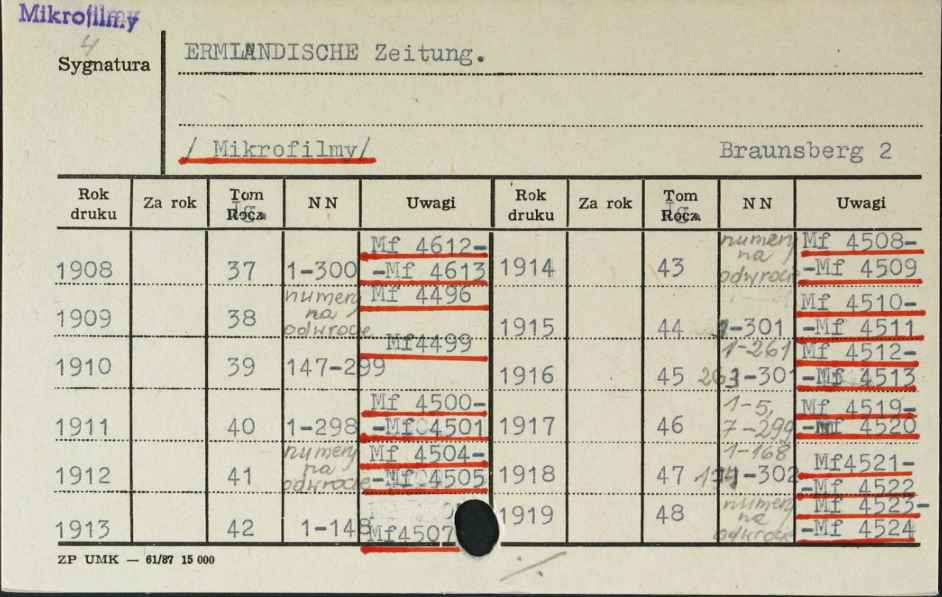 Mikrofilmy
4
Sygnatura
ERMLANDISCHE Zeitung.
/ Mikrofilmy/
Braunsberg 2
Rok druku Za rok Tom Rocz. NN Uwagi Rok druku Za rok Tom Rocz. NN Uwagi
1908 37 1-300 Mf 4612-
-Mf 4613
1909 38 numery na odwrocie Mf 4496
1910 39 147-299 Mf4499
1911 40 1-298 Mf 4500-
-Mf 4501
1912 41 numery na odwrocie Mf 4504-
-Mf 4505
1913 42 1-148 Mf4507
1914 43 numery na odwrocie Mf 4508-
-Mf 4509
1915 44 1-301 Mf 4510-
-Mf 4511
1916 45 1-261 Mf 4512-
-301 -Mf 4513
1917 46 1-5, Mf 4519-
7-299 -Mf 4520
1918 47 1-168 Mf4521-
-302 -Mf 4522
1919 48 numery na odwrocie Mf 4523-
-Mf 4524
ZP UMK — 61/87 15 000